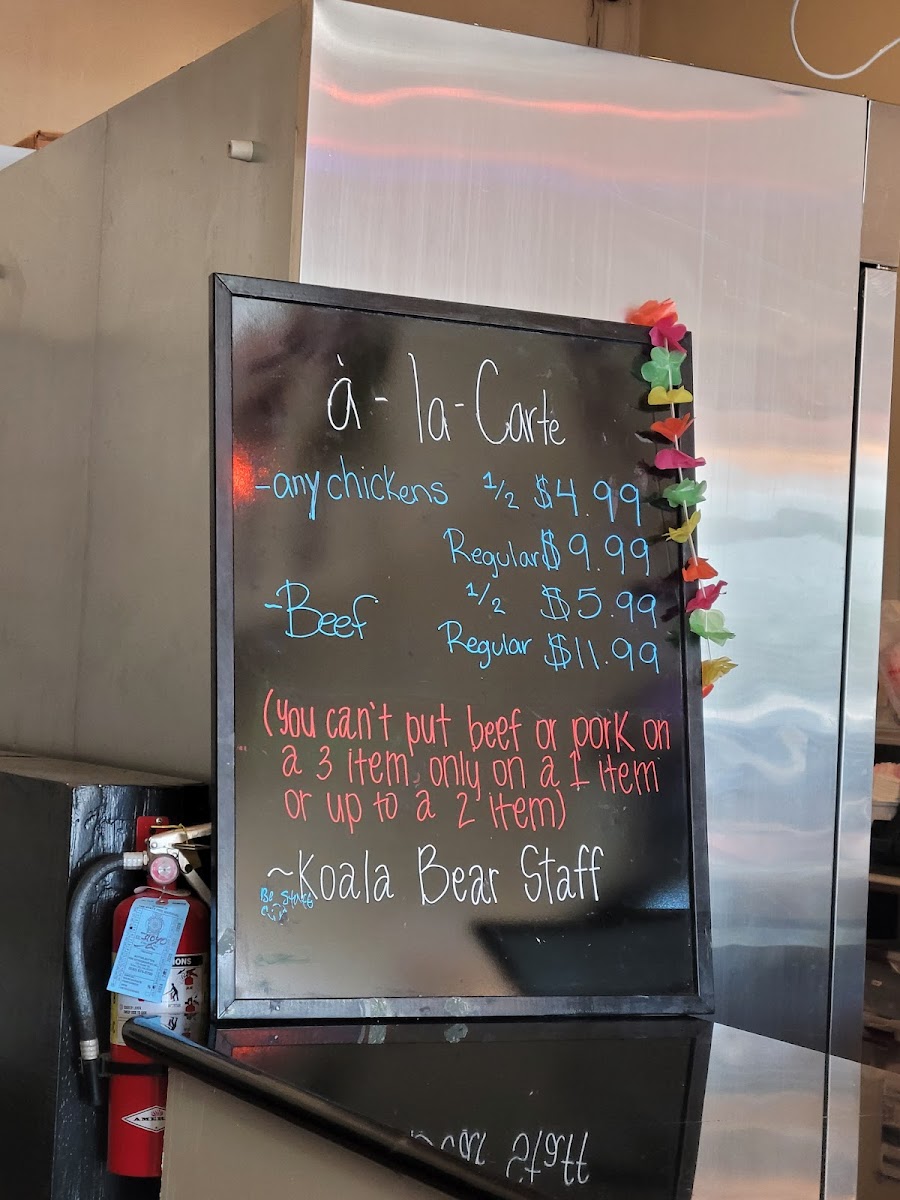 à-la-Carte
-any chickens 1/2 $4.99
Regular $9.99
-Beef 1/2 $5.99
Regular $11.99
(you can't put beef or pork on
a 3 item only on a 1 item
or up to a 2 item)
~Koala Bear Staff